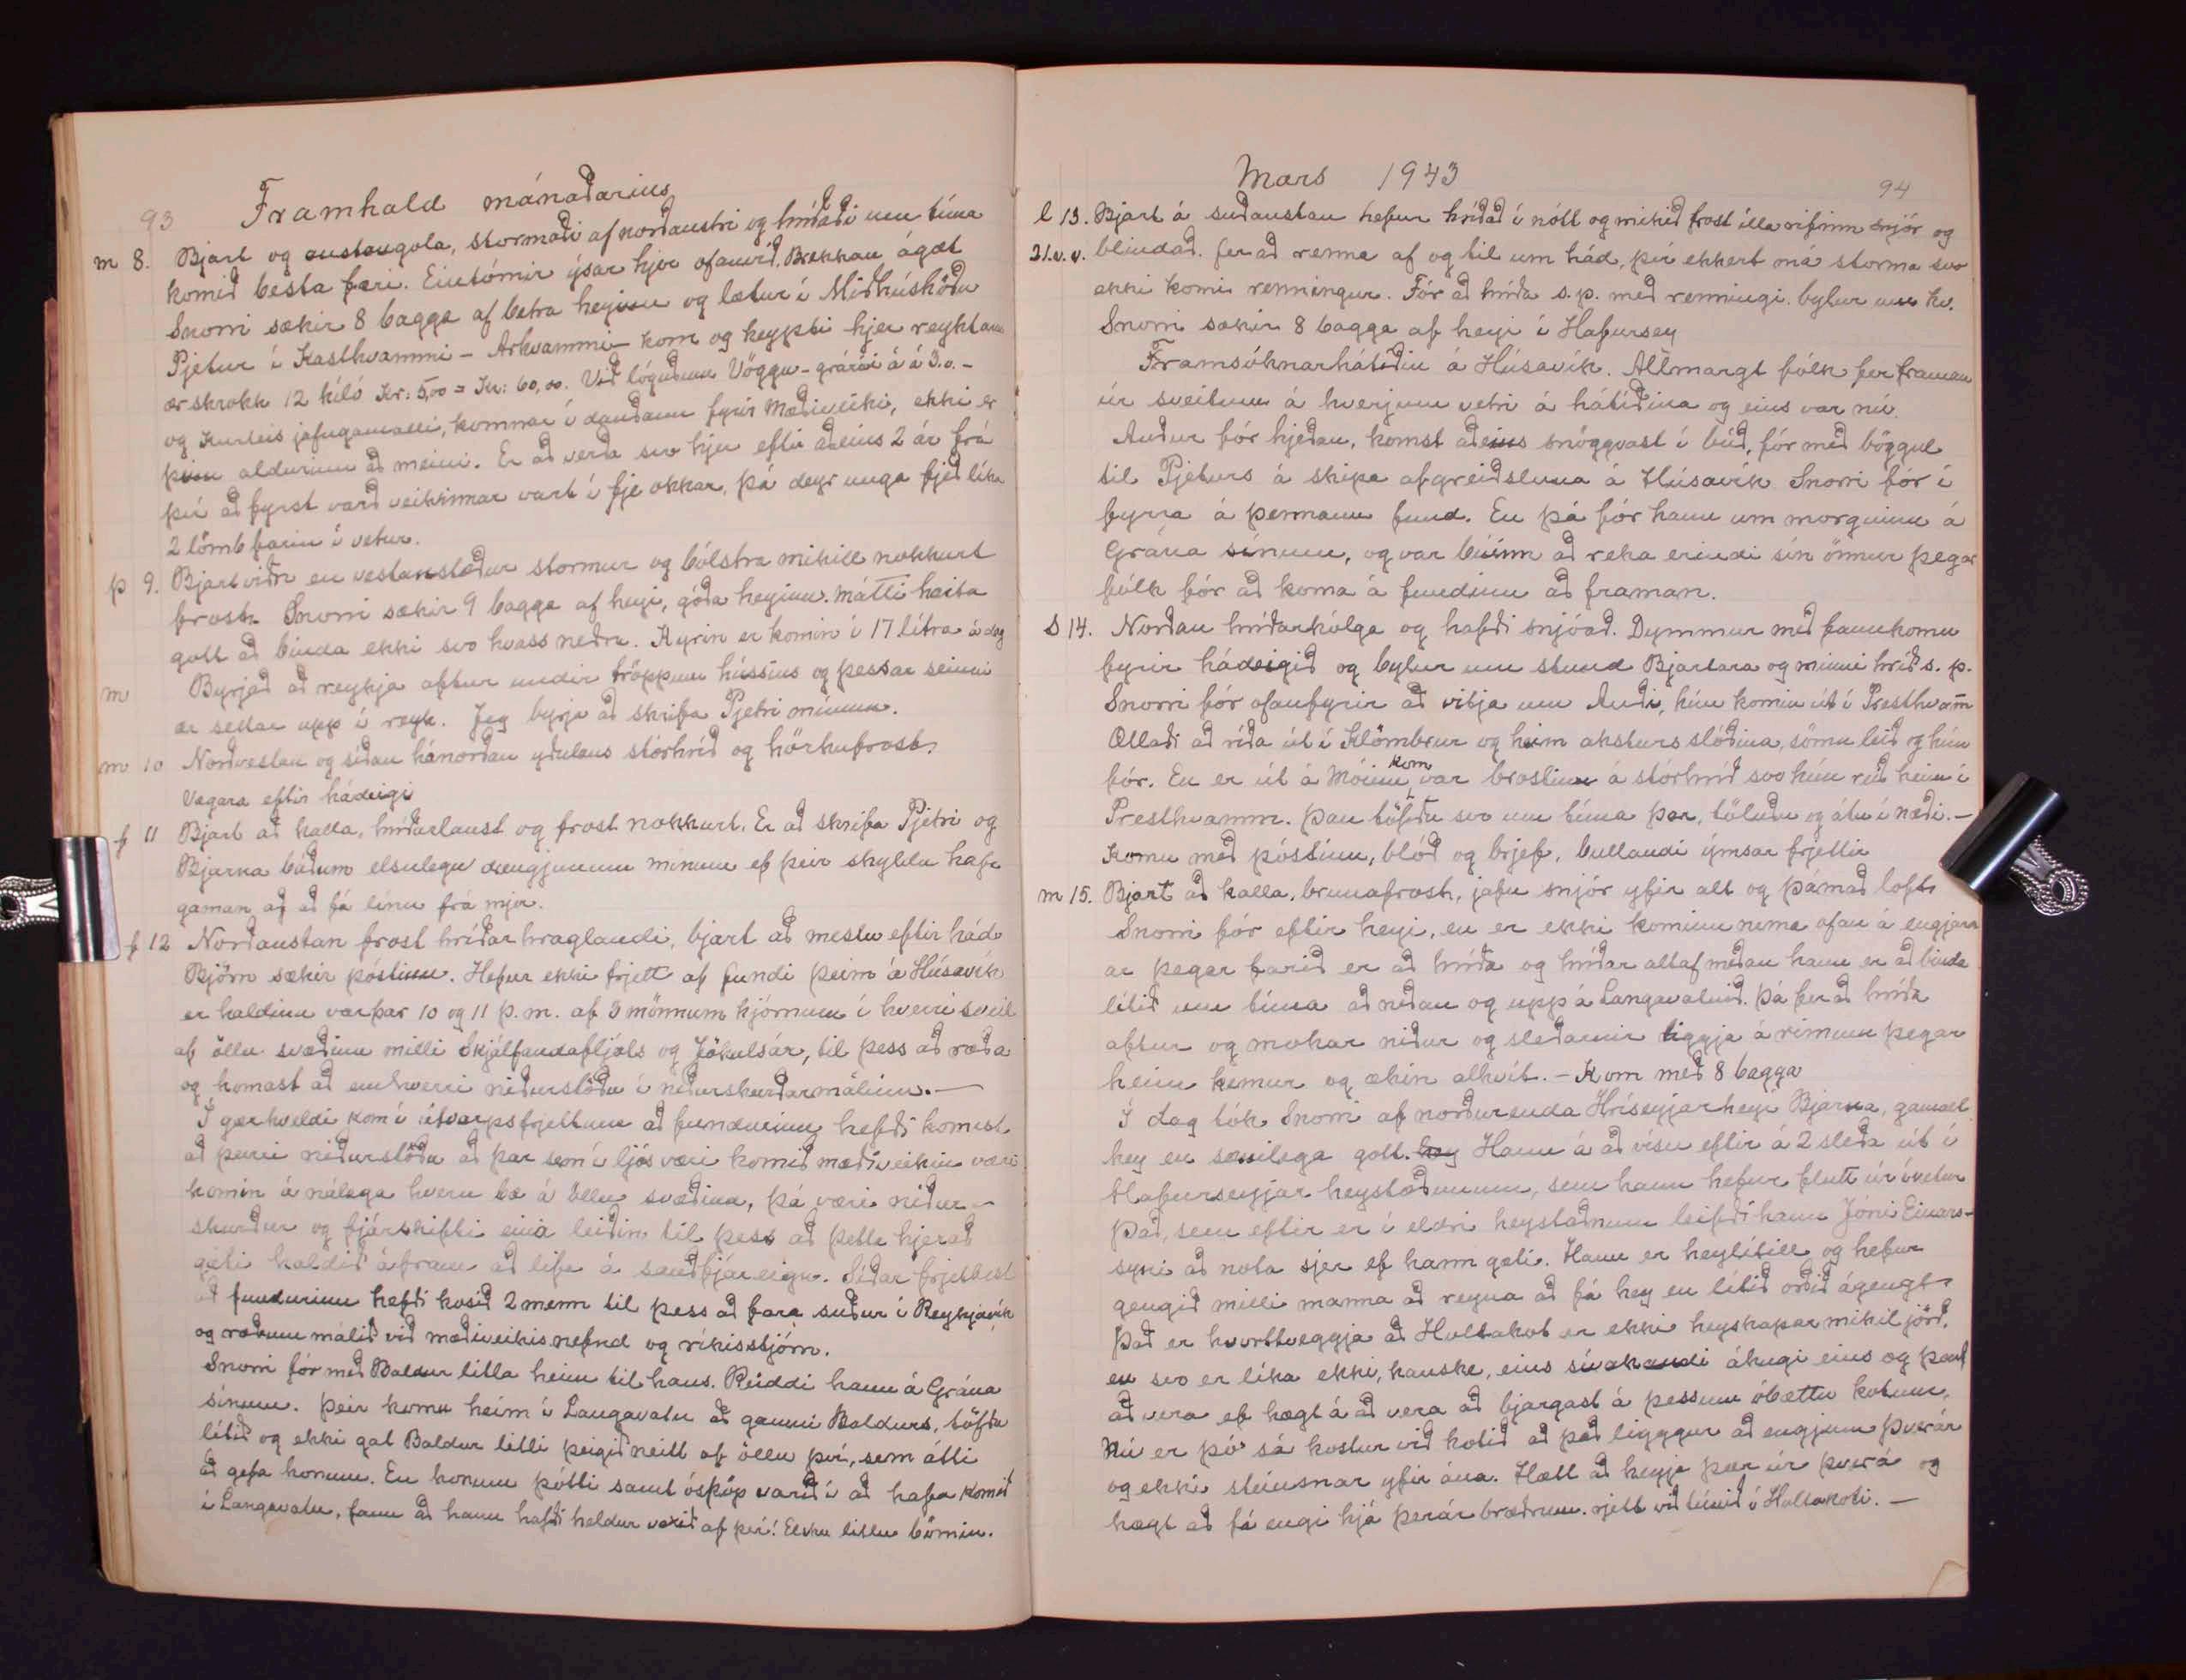 93
Framhald mánaðarins
m 8. Bjart og austangola, stormaði af norðaustri og hríðaði um tíma
komið besta færi. Eintómir ýsar hjer ofanvið. Brekkan ágæt
Snorri sækir 8 bagga af betra heyinu og lætur í Miðhúshöðu
Pjetur í Kasthvammi - Árhvammi - kom og keypti hjer reyktan
ær skrokk 12 kíló Kr: 5,00 = Kr: 60,00. Við lóguðum Vöggu - grárri á á 3.v. -
og Kurleis jafngamalli, komnar í dauðann fyrir Mæðiveiki, ekki er
þeim aldurinn að meini. Er að verða svo hjer eftir aðeins 2 ár frá
því að fyrst varð veikinnar vart í fje okkar, þá deyr unga fjeð líka
2 lömb farin í vetur.
þ 9. Bjartviðri en vestanstæður stormur og bólstra mikill nokkurt
frost. Snorri sækir 9 bagga af heyi, góða heyinu. mátti heita
gott að binda ekki svo hvass neðra. Kýrin er komin í 17 lítra á dag
m Byrjað að reykja aftur undir tröppum hússins og þessar seinni
ær settar upp í reyk. Jeg byrja að skrifa Pjetri mínum.
m 10 Norðvestan og síðan hánorðan ýðulaus stórhríð og hörkufrost.
Vægara eftir hádeigi
f 11 Bjart að kalla, hríðarlaust og frost nokkurt. Er að skrifa Pjetri og
Bjarna báðum elsulegu drengjunum mínum ef þeir skyldu hafa
gaman af að fá línu frá mjer.
f 12 Norðaustan frost hríðar hraglandi, bjart að mestu eftir hád.
Björn sækir póstinn. Hefur ekki frjett af fundi þeim á Húsavík
er haldinn var þar 10 og 11 þ.m. af 3 mönnum kjörnum í hverri sveit
af öllu svæðinu milli Skjálfandafljóts og Jökulsár, til þess að ræða
og komast að einhverri niðurstöðu í niðurskurðarmálinu. -
Í gærkveldi kom í útvarpsfrjettum að fundurinn hefði komist
að þeirri niðurstöðu að þar sem í ljós væri komið mæðiveikin væri
komin á nálega hvern bæ á öllu svæðinu, þá væri niður-
skurður og fjárskifti eina leiðin til þess að þetta hjerað
gæti haldið áfram að lifa á sauðfjáreign. Síðar frjettist
að fundurinn hefði kosið 2 menn til þess að fara suður í Reykjavík
og ræðum málið við mæðiveikisnefnd og ríkisstjórn.
Snorri fór með Baldur litla heim til hans. Reiddi hann á Grána
sínum. Þeir komu heim í Langavatn að gamni Baldurs, töfðu
lítið og ekki gat Baldur litli þeigið neitt af öllu því, sem átti
að gefa honum. En honum þótti samt ósköp varið í að hafa komið
í Langavatn, fann að hann hafði heldur vaxið af því! Elsku litlu börnin.
Mars 1943
94
l 13. Bjart á suðaustan hefur hríðað í nótt og mikið frost illa rifinn snjór og
21.v.v. blindað. fer að renna af og til um hád, því ekkert má storma svo
ekki komi renningur. Fór að hríða s.p. með renningi. bylur um kv.
Snorri sækir 8 bagga af heyi í Hafursey
Framsóknarhátíðin á Húsavík. Allmargt fólk fer framan
úr sveitum á hverjum vetri á hátíðina og eins var nú.
Auður fór hjeðan, komst aðeins snöggvast í búð, fór með böggul
til Pjeturs á skipa afgreiðsluna á Húsavík Snorri fór í
fyrra á þennann fund. En þá fór hann um morguninn á
Grána sínum, og var búinn að reka erindi sín önnur þegar
fólk fór að koma á fundinn að framan.
S 14. Norðan hríðarkólga og hafði snjóað. Dymmur með fannkomu
fyrir hádeigið og bylur um stund Bjartara og minni hríð s.p.
Snorri fór ofanfyrir að vitja um Auði, hún komin út í Presthvam̅
Ællaði að ríða út í Klömbrur og heim aksturs slóðina, sömu leið og hún
fór. En er út á Móinn kom, var brostinn á stórhríð svo hún reið heim í
Presthvamm. Þau töfðu svo um tíma þar, töluðu og átu í næði. -
Komu með póstinn, blöð og brjef, bullandi ýmsar frjettir
m 15. Bjart að kalla, brunafrost, jafn snjór yfir allt og þámað loft.
Snorri fór eftir heyi, en er ekki kominn nema ofan á engjarn
ar þegar farið er að hríða og hríðar alltaf meðan hann er að binda
lítið um tíma að neðan og upp á Langavatnið. Þá fer að hríða
aftur og mokar niður og sleðarnir liggja á rimum þegar
heim kemur og ækin alhvít. - Kom með 8 bagga
Í dag tók Snorri af norðurenda Hríseyjarheyi Bjarna, gamalt
hey en sæmilega gott. hey Hann á að vísu eftir á 2 sleða út í
Hafurseyjar heystæðunum, sem hann hefur flutt úr í vetur
Það, sem eftir er í eldri heystæðunum leifði hann Jóni Einars-
syni að nota sjer ef hann gæti. Hann er heylítill og hefur
gengið milli manna að reyna að fá hey en lítið orðið ágengt.
Það er hvorttveggja að Holtakot er ekki heyskapar mikil jörð,
en svo er líka ekki, kanske, eins sívakandi áhugi eins og þarf
að vera ef hægt á að vera að bjargast á þessum óbættu kotum.
Nú er þó sá kostur við kotið að það liggur að engjum Þverár
og ekki steinsnar yfir ána. Hætt að heyja þær úr Þverá og
hægt að fá engi hjá Þverár bræðrum. rjett við túnið í Holtakoti. -